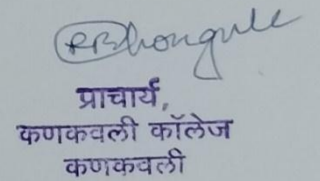 RBhongule
प्राचार्य,
कणकवली कॉलेज
कणकवली